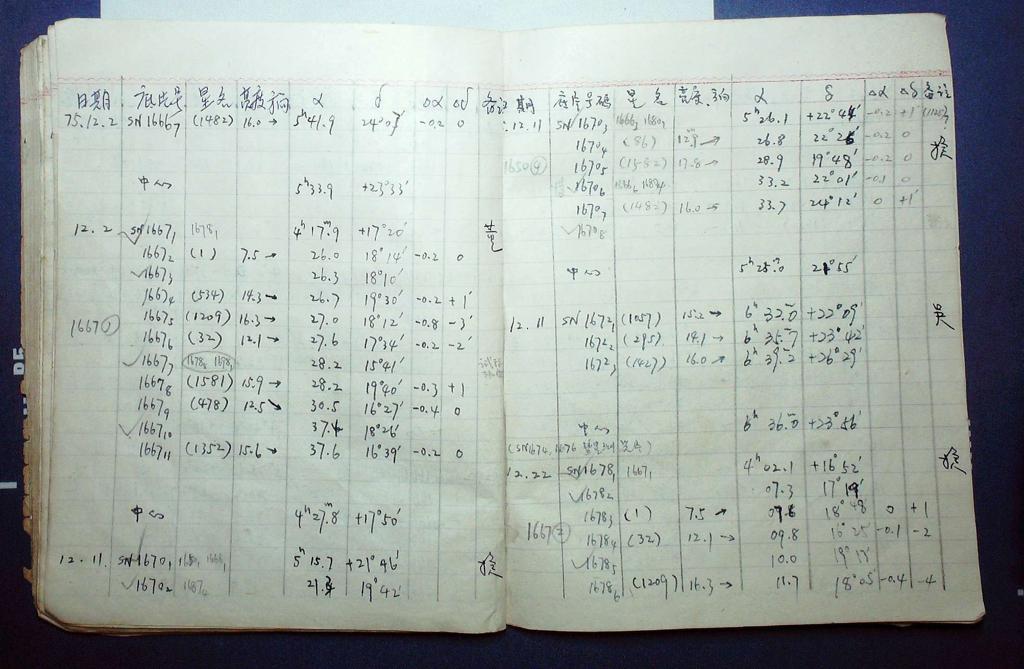 日期 底片号 星名 亮度 方向 α δ Δα Δδ 备注
75.12.2 SN1666₇ (1482) 16.0→ 5ʰ41.9 24°07′ -0.2 0
中心 5ʰ33.9 +23°33′
12.2 SN1667₁ 1678₁ 4ʰ17ᵐ.9 +17°20′
1667₂ (1) 7.5→ 26.0 18°14′ -0.2 0
✓1667₃ 26.3 18°10′
1667₄ (534) 14.3→ 26.7 19°30′ -0.2 +1′
1667① 1667₅ (1209) 16.3→ 27.0 18°12′ -0.8 -3′
1667₆ (32) 12.1→ 27.6 17°34′ -0.2 -2′
✓1667₇ 28.2 15°41′
1667₈ (1581) 15.9→ 28.2 19°40′ -0.3 +1
1667₉ (478) 12.5↘ 30.5 16°27′ -0.4 0
✓1667₁₀ 37.4 18°26′
1667₁₁ (1352) 15.6→ 37.6 16°39′ -0.2 0
中心 4ʰ27ᵐ.8 +17°50′
12.11. SN1670₁ 5ʰ15.7 +21°46′
✓1670₂ 1687₄ 21.3 19°42′
期 底片号码 星名 亮度 方向 α δ Δα Δδ 备注
12.11 SN1670₃ 5ʰ26.1 +22°44′ -0.2 +1′
1670₄ (86) 12.9→ 26.8 22°25′ -0.2 0
1650④ 1670₅ (1532) 17.8→ 28.9 19°48′ -0.2 0
✓1670₆ 33.2 22°01′ -0.1 0
1670₇ (1482) 16.0→ 33.7 24°12′ 0 +1′
✓1670₈
中心 5ʰ25ᵐ.0 21°55′
12.11 SN1672₁ (1057) 15.2→ 6ʰ32ᵐ.0 +22°09′ 吴
1672₂ (295) 14.1→ 6ʰ35ᵐ.7 +23°42′
1672₃ (1427) 16.0→ 6ʰ39ᵐ.2 +26°29′
中心 6ʰ36ᵐ.0 +23°56′
(SN1674, 1676
12.22 SN1678₁ 1667₁ 4ʰ02.1 +16°52′
✓1678₂ 07.3 17°19′
1678₃ (1) 7.5→ 09.6 18°48 0 +1
1667② 1678₄ (32) 12.1→ 09.8 18°25′ -0.1 -2
✓1678₅ 10.0 19°13′
1678₆ (1209) 16.3→ 11.7 18°05′ -0.4 -4